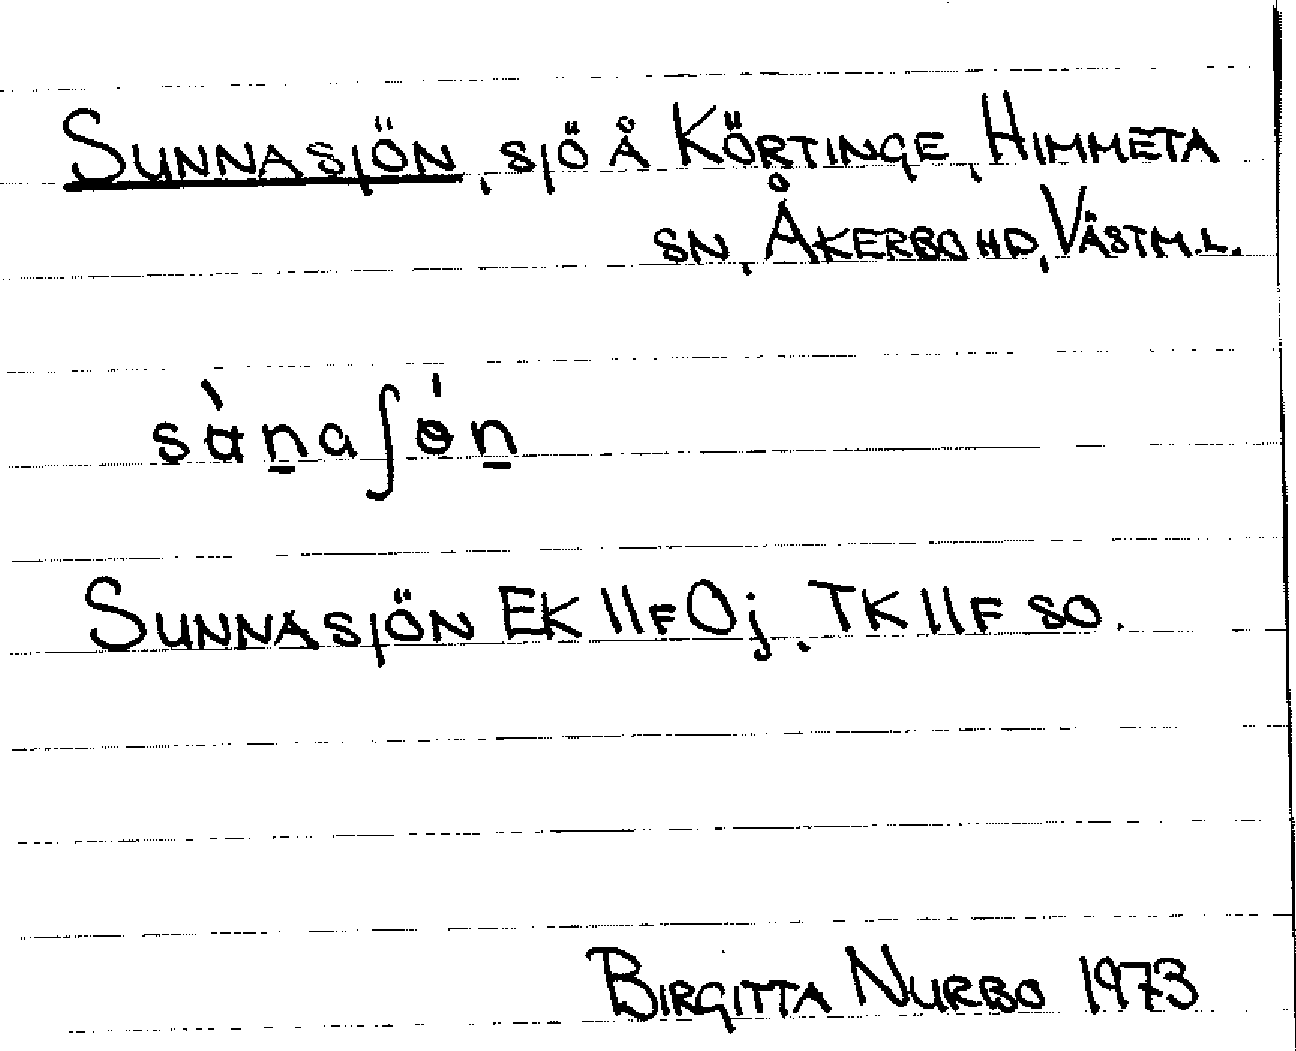 SUNNASJÖN, SJÖ Å KÖRTINGE, HIMMETA
SN, ÅKERBO HD, VÄSTM.L.
sὰn̲aʃɵ́n̲
SUNNASJÖN EK 11F 0j, TK 11F SO.
BIRGITTA NURBO 1973